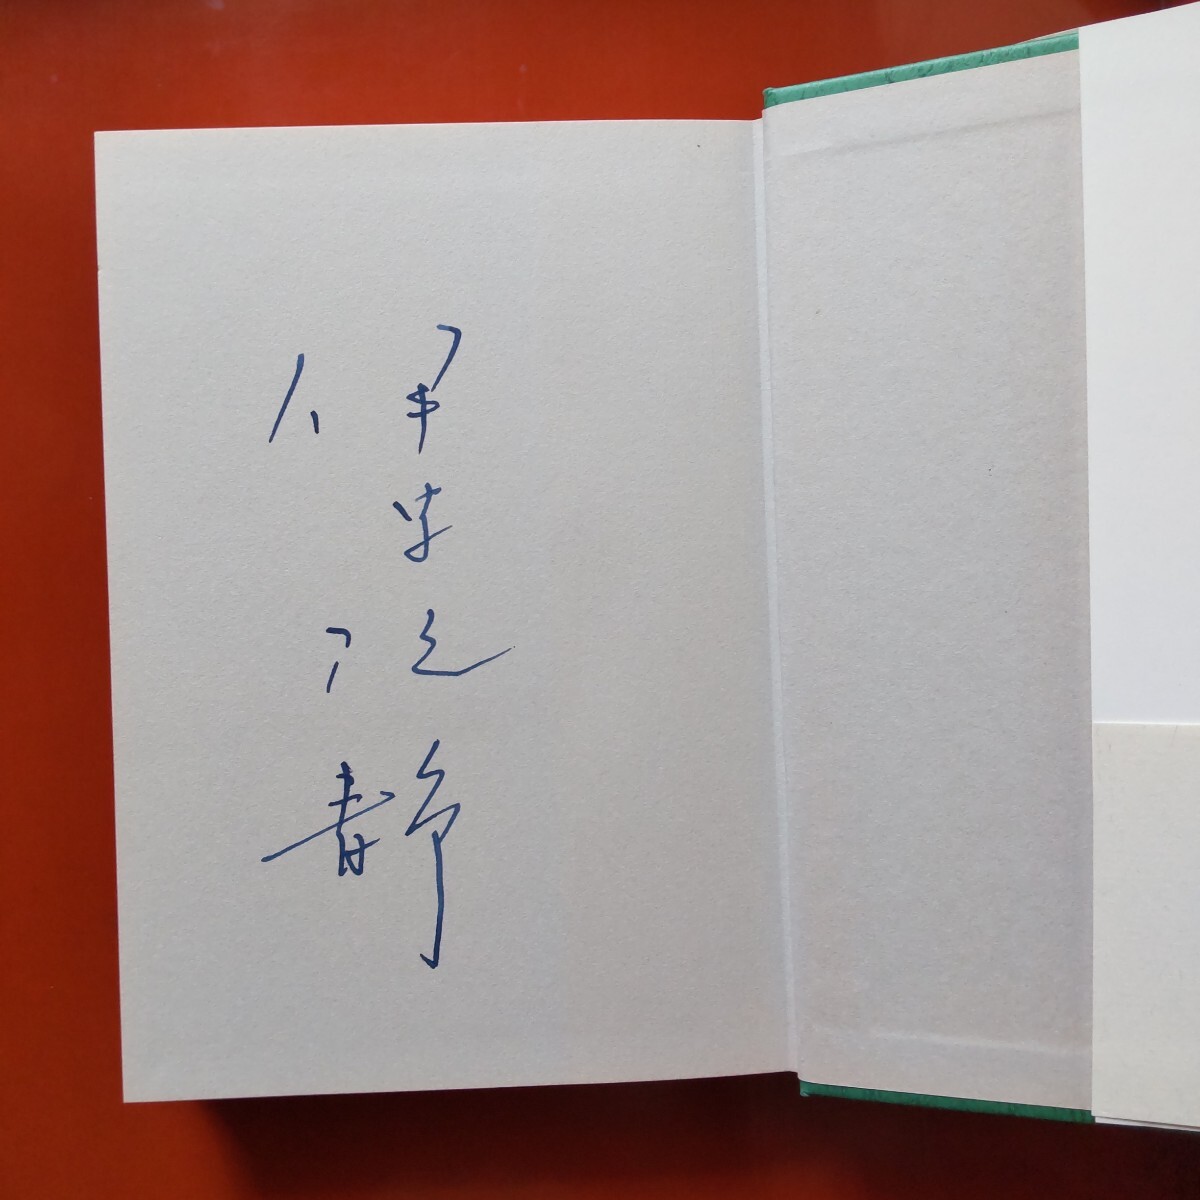 伊集院静